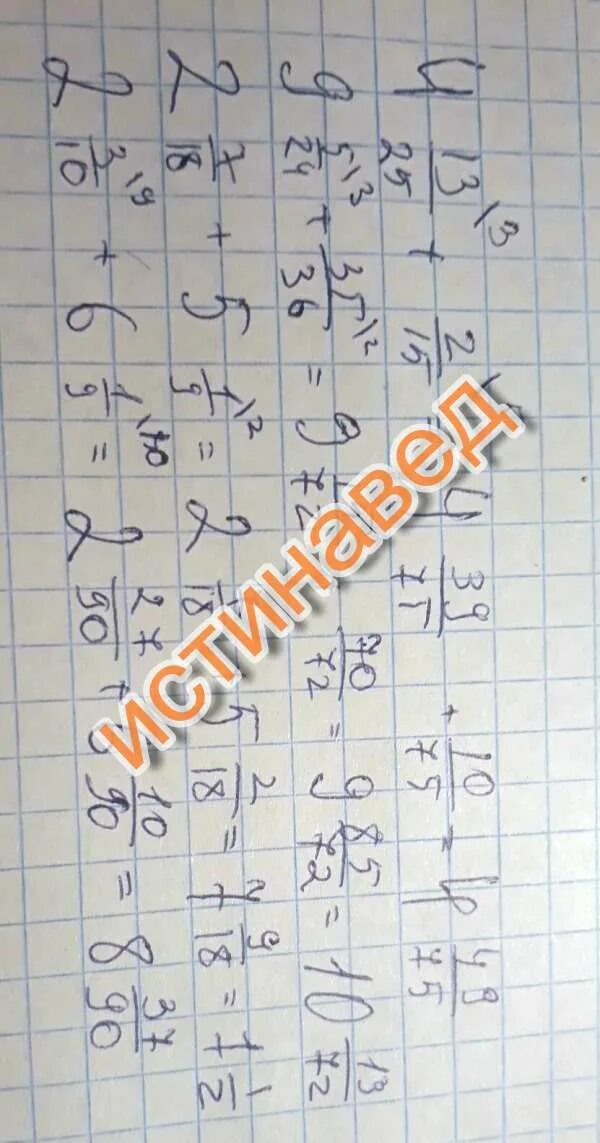 4 13/25 \3 + 2/15 \5 = 4 39/75 + 10/75 = 4 49/75
9 5/24 \3 + 35/36 \2 = 9 /72 70/72 = 9 85/72 = 10 13/72
2 7/18 + 5 1/9 \2 = 2 /18 5 2/18 = 7 9/18 = 7 1/2
2 3/10 \9 + 6 1/9 \10 = 2 27/90 + 6 10/90 = 8 37/90
ИСТИНАВЕД